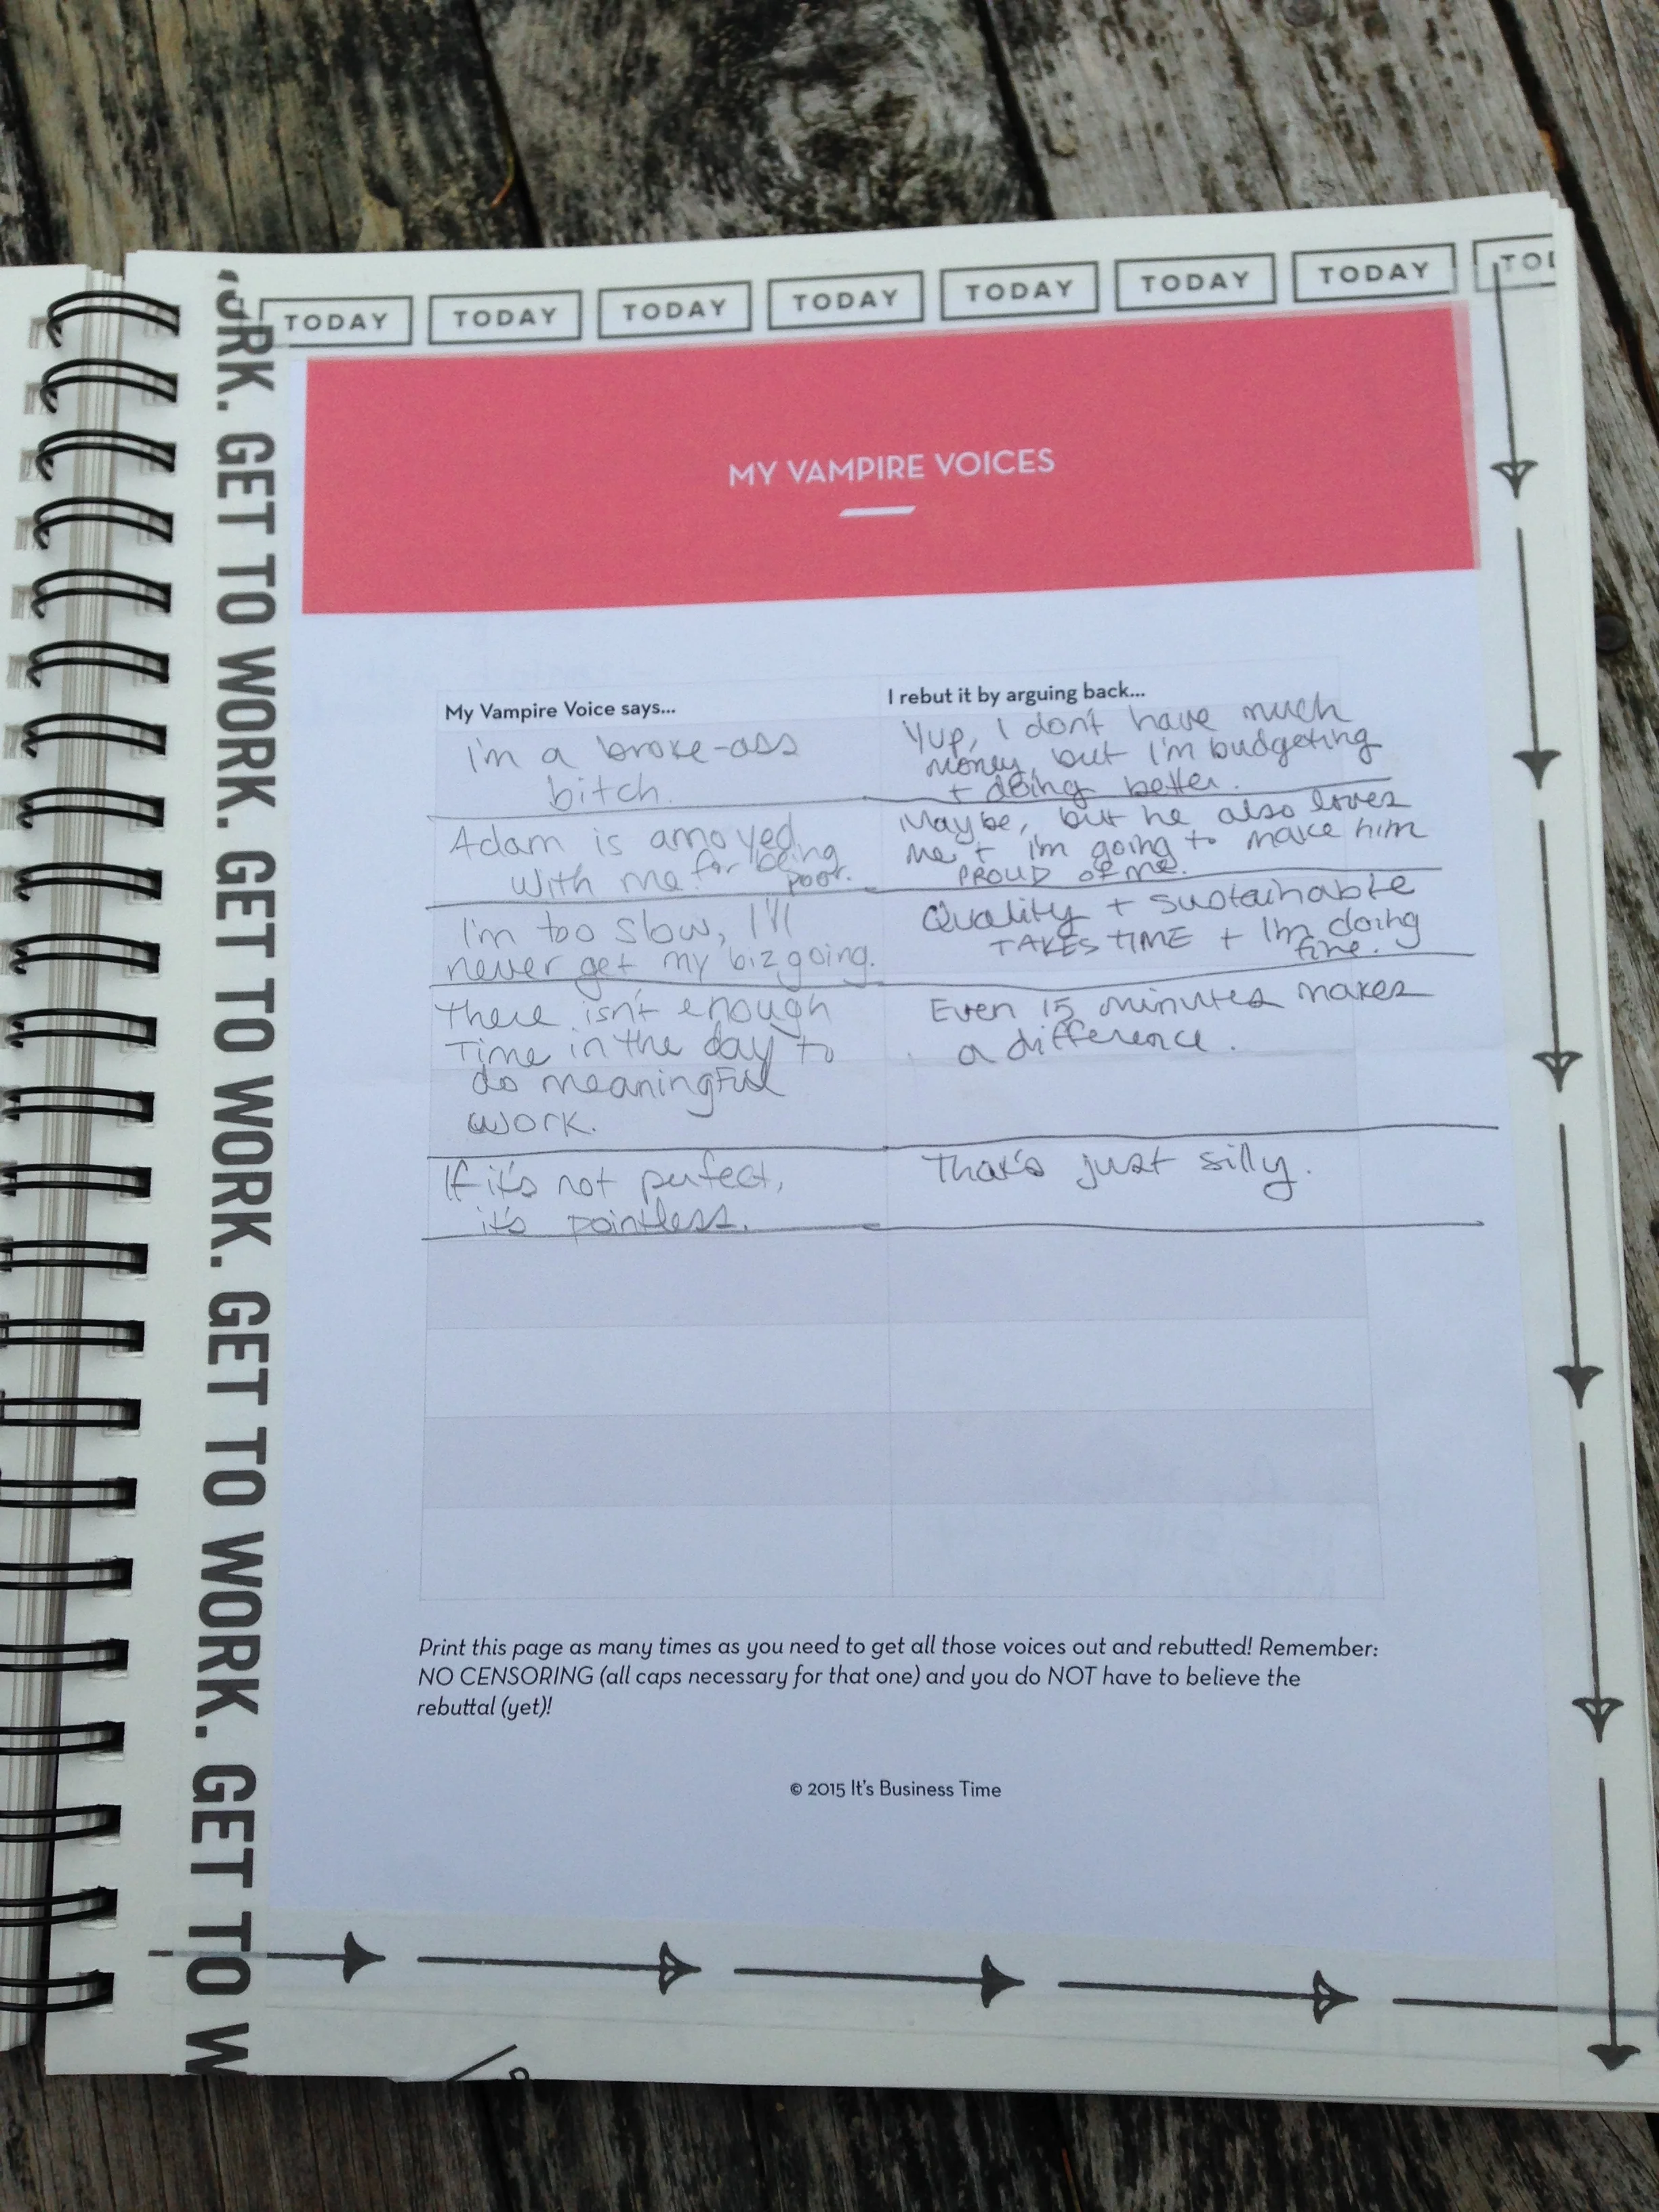 TODAY TODAY TODAY TODAY TODAY TODAY TODAY TOD
ORK. GET TO WORK. GET TO WORK. GET TO WORK. GET TO WORK. GET TO W
MY VAMPIRE VOICES
My Vampire Voice says...
I rebut it by arguing back...
I'm a broke-ass
bitch.
Yup, I don't have much
money, but I'm budgeting
+ doing better.
Adam is annoyed
with me for being
poor.
Maybe, but he also loves
me + I'm going to make him
PROUD of me.
I'm too slow, I'll
never get my biz going.
Quality + sustainable
TAKES TIME + I'm doing
fine.
There isn't enough
time in the day to
do meaningful
work.
Even 15 minutes makes
a difference.
If it's not perfect,
it's pointless.
That's just silly.
Print this page as many times as you need to get all those voices out and rebutted! Remember:
NO CENSORING (all caps necessary for that one) and you do NOT have to believe the
rebuttal (yet)!
© 2015 It's Business Time